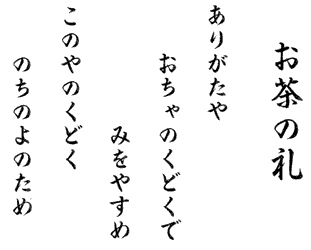 お茶の礼
ありがたや
おちゃのくどくで
みをやすめ
このやのくどく
のちのよのため